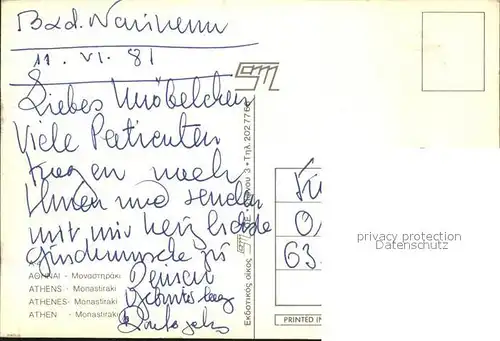 Bad. Nauheim
11. VI. 81
Liebes Knöbelchen
Viele Patienten
fragen nach
Ihnen und senden
mit mir herzliche
Glückwünsche zu
Geburtstag
ΑΘΗΝΑΙ - Μοναστηράκι
ATHENS - Monastiraki
ATHENES - Monastiraki
ATHEN - Monastiraki
Εκδοτικός οίκος
3 • Τηλ. 202 77 66
63
privacy protection
Datenschutz
PRINTED IN